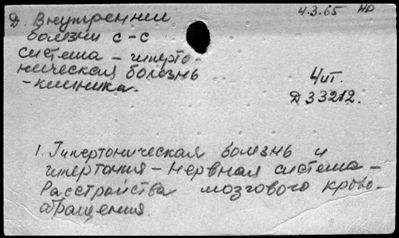 4.3.65 НО
Д. Внутренние
болезни с-с
система - гиперто-
ническая болезнь
- клиника.
4 ит.
Д 33212.
1. Гипертоническая болезнь и
гипертония - Нервная система -
Расстройства мозгового крово-
обращения.